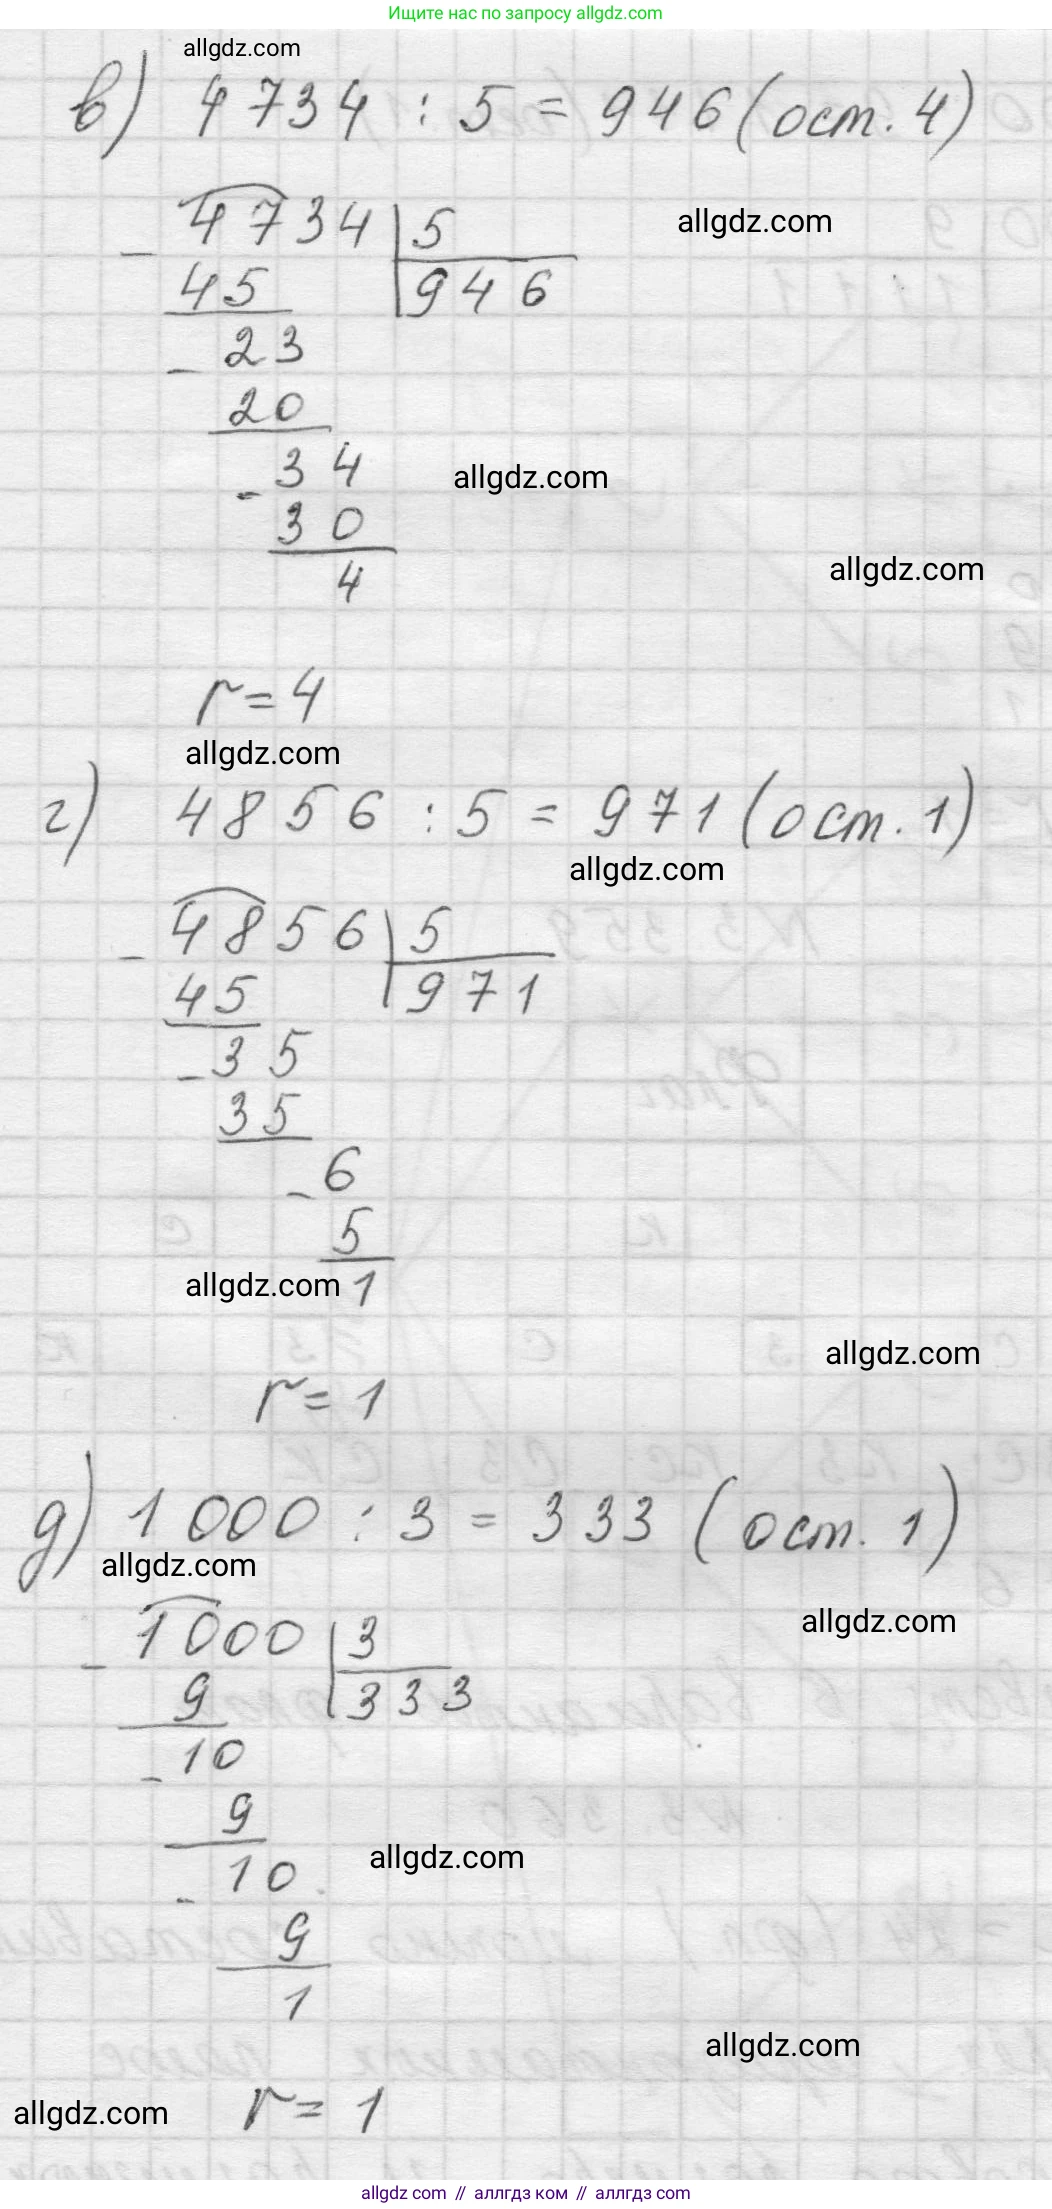 Ищите нас по запросу allgdz.com
allgdz.com
в) 4734 : 5 = 946 (ост. 4)
4734 5
allgdz.com
-
45 946
- 23
20
- 34
allgdz.com
30
allgdz.com
4
r = 4
allgdz.com
г) 4856 : 5 = 971 (ост. 1)
allgdz.com
- 4856 5
45 971
- 35
35
- 6
5
allgdz.com 1
allgdz.com
r = 1
д) 1000 : 3 = 333 (ост. 1)
allgdz.com
allgdz.com
- 1000 3
9 333
- 10
9
allgdz.com
- 10
9
1
allgdz.com
allgdz.com r = 1
allgdz com // аллгдз ком // аллгдз com